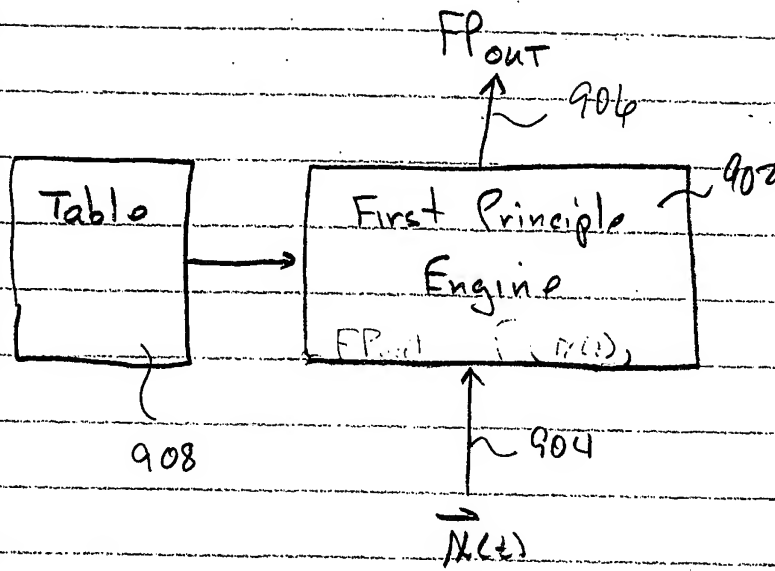 FP OUT
906
902
Table
First Principle
Engine
FPout
908
904
N(t)